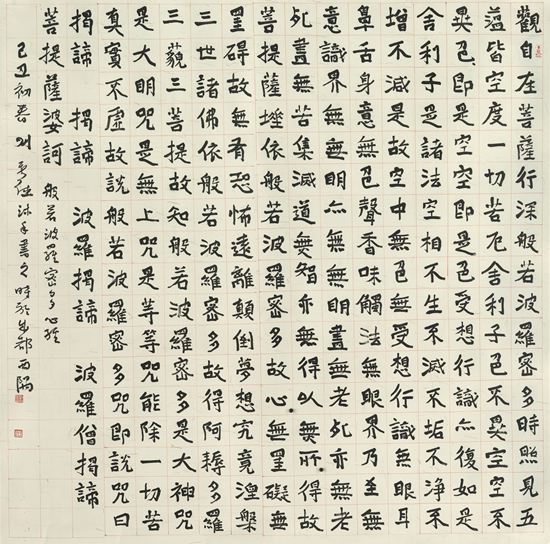 觀自在菩薩行深般若波羅蜜多時照見五
蘊皆空度一切苦厄舍利子色不異空空不
異色即是空空即是色受想行識亦復如是
舍利子是諸法空相不生不滅不垢不淨不
增不減是故空中無色無受想行識無眼耳
鼻舌身意無色聲香味觸法無眼界乃至無
意識界無無明亦無無明盡無老死亦無老
死盡無苦集滅道無智亦無得以無所得故
菩提薩埵依般若波羅蜜多故心無罣礙
罣碍故無有恐怖遠離顛倒夢想究竟涅槃
三世諸佛依般若波羅蜜多故得阿耨多羅
三藐三菩提故知般若波羅蜜多是大神咒
是大明咒是無上咒是等等咒能除一切苦
真實不虛故說般若波羅蜜多咒即說咒曰
揭諦 揭諦 波羅揭諦 波羅僧揭諦
菩提薩婆訶 般若波羅蜜多心經
己丑初春 沐手書之時於成都西隅